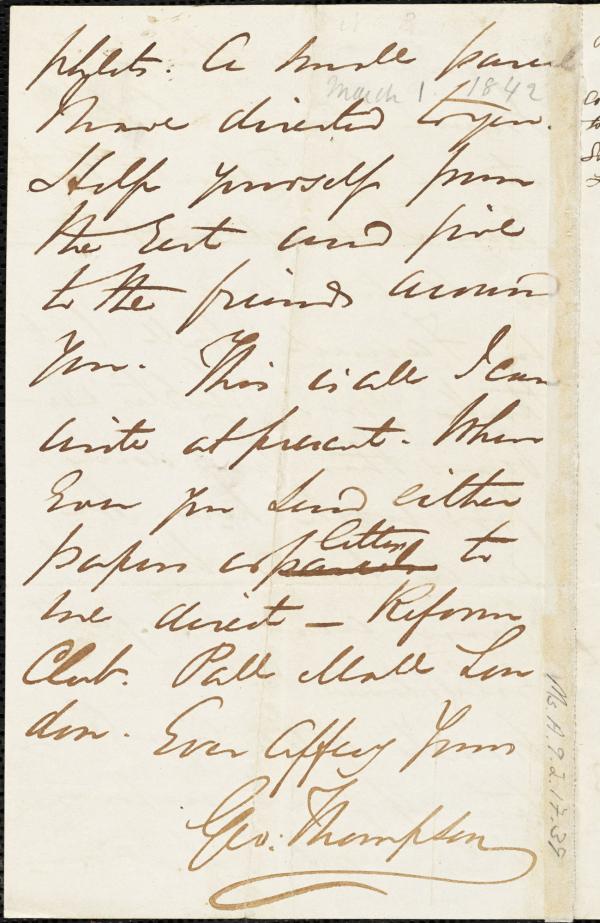 phlets. A small parcel
March 1. 1842
I have directed to you.
Help yourself from
the rest and give
to the friends around
you. This is all I can
write at present. When
Ever you send either
papers or parcels letters to
me direct — Reform
Club. Pall Mall Lon
don. Ever Affecy Yours
Geo. Thompson
Ms. A. 9. 2. 17. 39